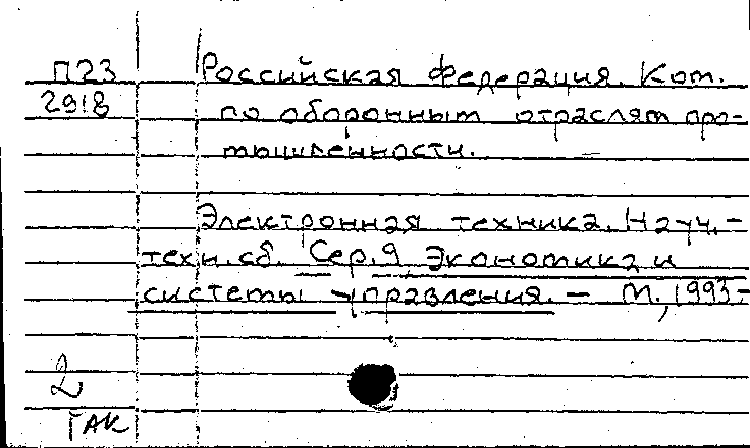 П23 Российская Федерация. Ком.
2918 по оборонным отраслям про-
мышленности.
Электронная техника. Науч.-
техн. сб. Сер.9, Экономика и
системы управления. – М., 1993-
2
ГАК